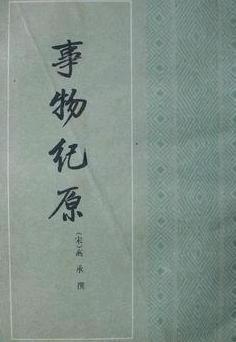 事物纪原
(宋)高承撰